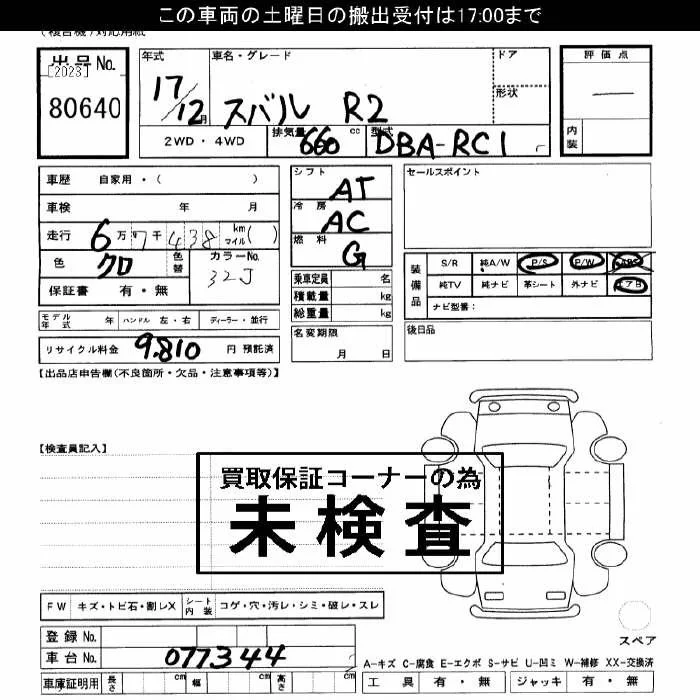 この車両の土曜日の搬出受付は17:00まで
出品No.
[2023]
80640
年式
17/12月
車名・グレード
スバル R2
ドア
形状
2WD・4WD
排気量 660 cc
型式 DBA-RC1
評価点
—
内装
車歴 自家用・( )
車検 年 月
走行 6万7千438 km マイル( )
色 クロ
色替
カラーNo. 32J
保証書 有・無
シフト AT
冷房 AC
燃料 G
乗車定員 名
積載量 kg
総重量 kg
セールスポイント
装備品
S/R 純A/W P/S P/W ABS
純TV 純ナビ 革シート 外ナビ エアB
ナビ型番:
モデル年式 年 ハンドル 左・右 ディーラー・並行
リサイクル料金 9,810 円 預託済
名変期限 月 日
後日品
【出品店申告欄(不良箇所・欠品・注意事項等)】
【検査員記入】
買取保証コーナーの為
未検査
FW キズ・トビ石・割レX
シート内装 コゲ・穴・汚レ・シミ・破レ・スレ
スペア
登録No.
車台No. 077344
車庫証明用 長さ cm 幅 cm 高さ cm
A-キズ C-腐食 E-エクボ S-サビ U-凹ミ W-補修 XX-交換済
工具 有・無 ジャッキ 有・無